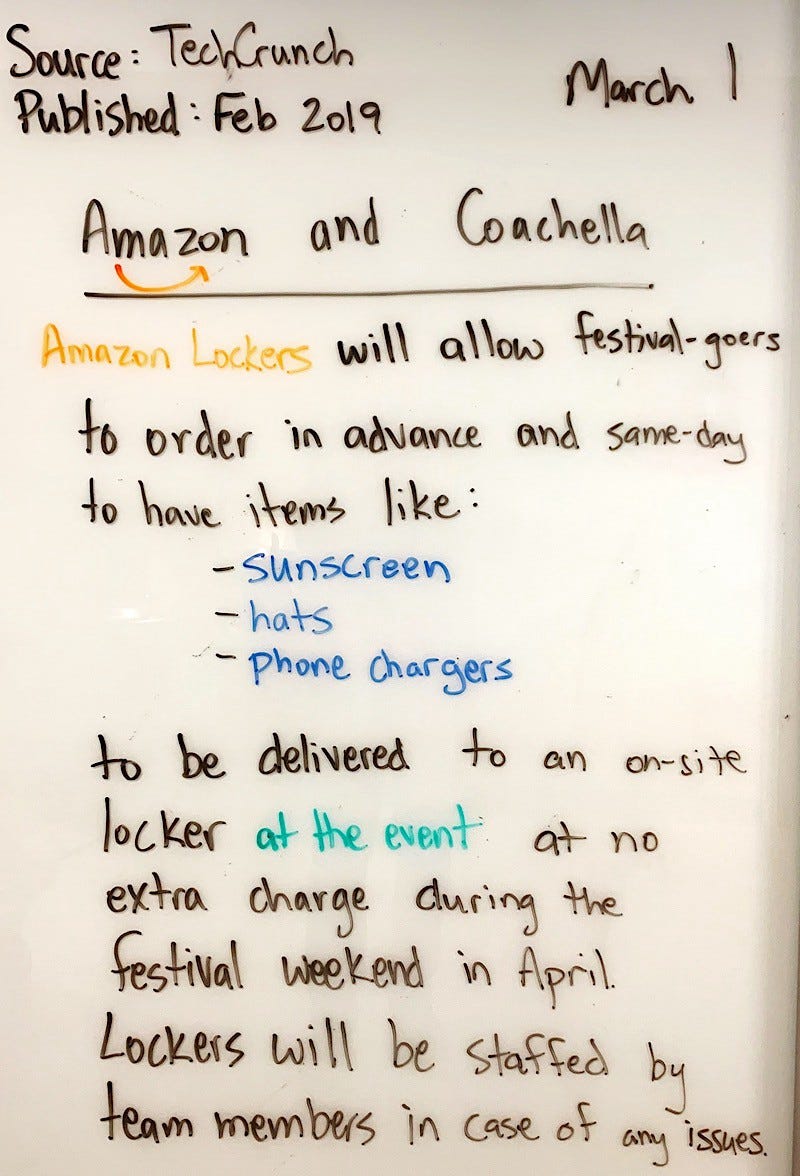 Source: TechCrunch
March 1
Published: Feb 2019
Amazon and Coachella
Amazon Lockers will allow festival-goers
to order in advance and same-day
to have items like:
- sunscreen
- hats
- phone chargers
to be delivered to an on-site
locker at the event at no
extra charge during the
festival weekend in April.
Lockers will be staffed by
team members in case of any issues.